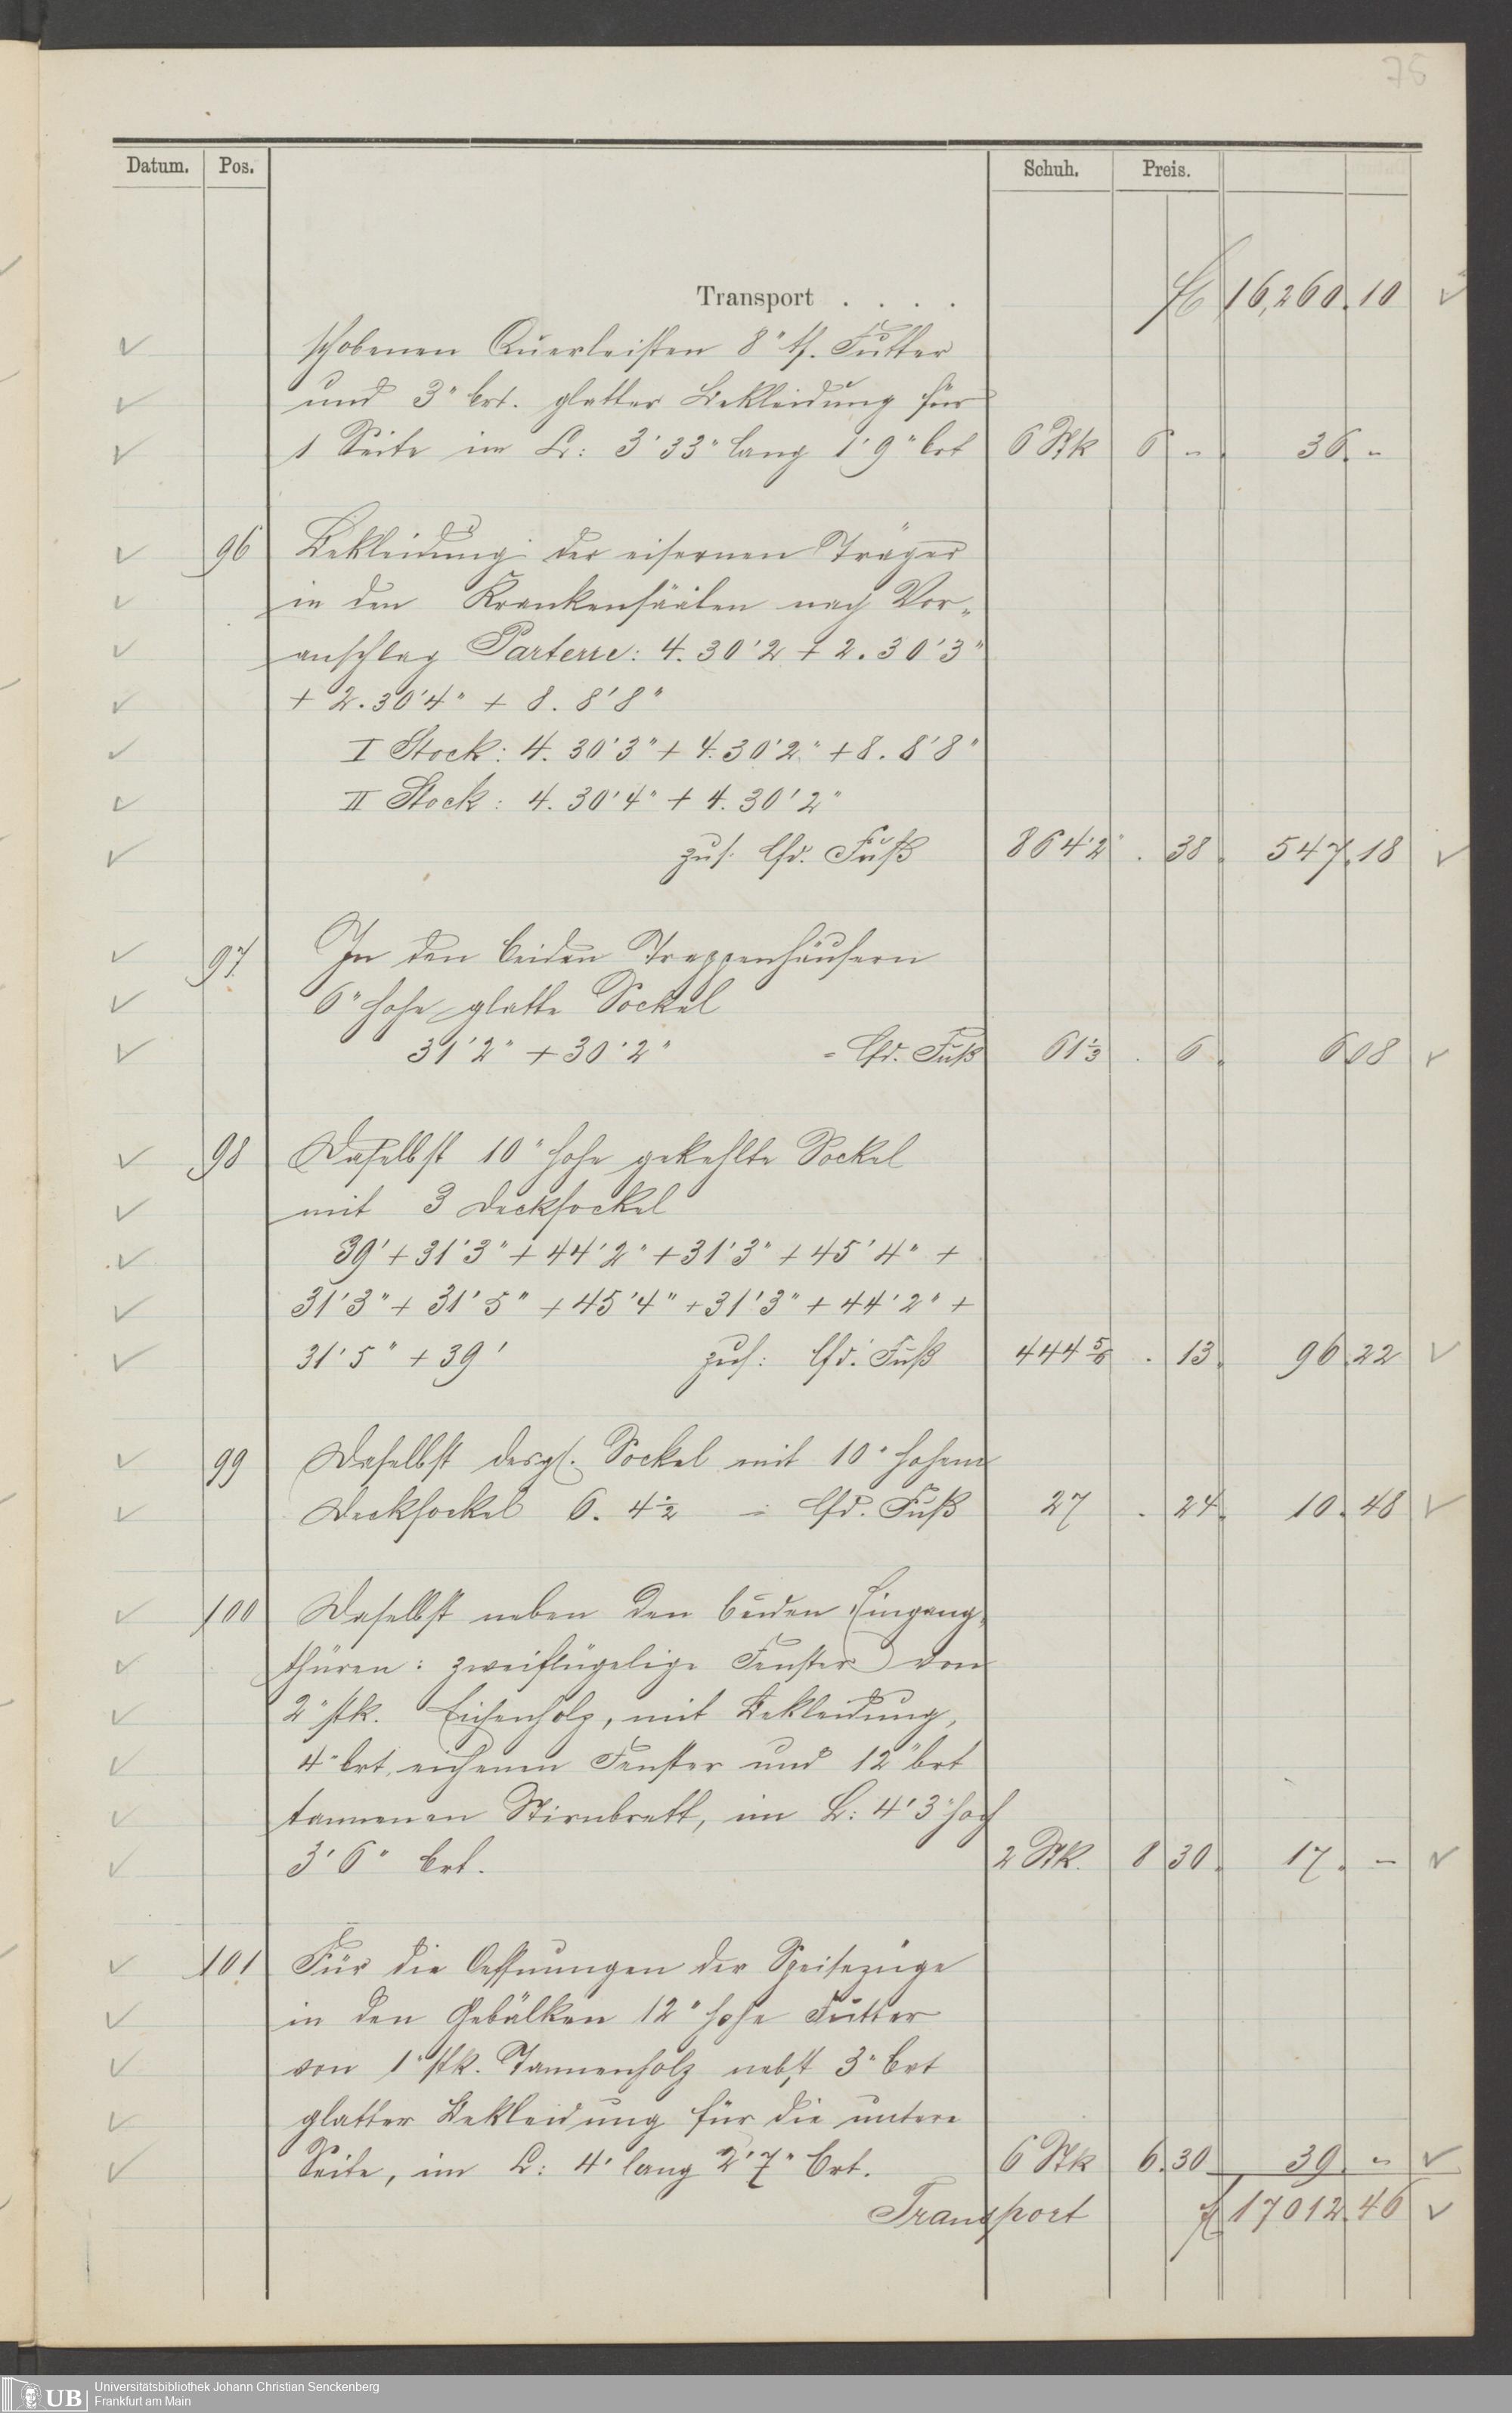 75
Datum. Pos. Schuh. Preis.
Transport . . . . fl 16,260. 10
schobenen Querleisten 8" tf. Futter
und 3" brt. glatter Bekleidung für
1 Seite im L: 3'33" lang 1'9" brt 6 Stk 6 - 36. -
96 Bekleidung der eisernen Träger
in den Krankensäälen nach Vor-
anschlag Parterre: 4. 30'2 + 2. 30'3"
+ 2. 30'4" + 8. 8'8"
I Stock: 4. 30'3" + 4. 30'2" + 8. 8'8"
II Stock: 4. 30'4" + 4. 30'2"
zus. lfd. Fuß 864'2" . 38. 547. 18
97. In den beiden Treppenhäusern
6" hohe glatte Sockel
31'2" + 30'2" = lfd. Fuß 61 1/3 . 6. 6 08
98 Daselbst 10" hohe gekehlte Sockel
mit 3 Decksockel
39' + 31'3" + 44'2" + 31'3" + 45'4" +
31'3" + 31'5" + 45'4" + 31'3" + 44'2" +
31'5" + 39' zus: lfd. Fuß 444 5/6 . 13. 96. 22
99 Daselbst desgl. Sockel mit 10" hohem
Decksockel 6. 4 1/2 = lfd. Fuß 27 . 24. 10. 48
100 Daselbst neben den beiden Eingang-
thüren: zweiflügelige Fenster von
2" stk. Eichenholz, mit Bekleidung,
4" brt. eichenen Fenster und 12" brt
tannenen Stirnbrett, im L: 4'3" hoch
3'6" brt. 2 Stk. 8 30. 17. -
101 Für die Oeffnungen der Speisezüge
in den Gebälken 12" hohe Futter
von 1" stk. Tannenholz nebst 3" brt
glatter Bekleidung für die untere
Seite, im L: 4' lang 2'7" brt. 6 Stk 6. 30 39. -
Transport fl 17012. 46
UB Universitätsbibliothek Johann Christian Senckenberg
Frankfurt am Main